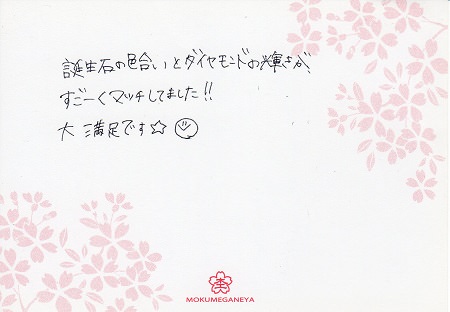 誕生石の色合いとダイヤモンドの輝きが、
すごーくマッチしてました!!
大満足です☆
MOKUMEGANEYA